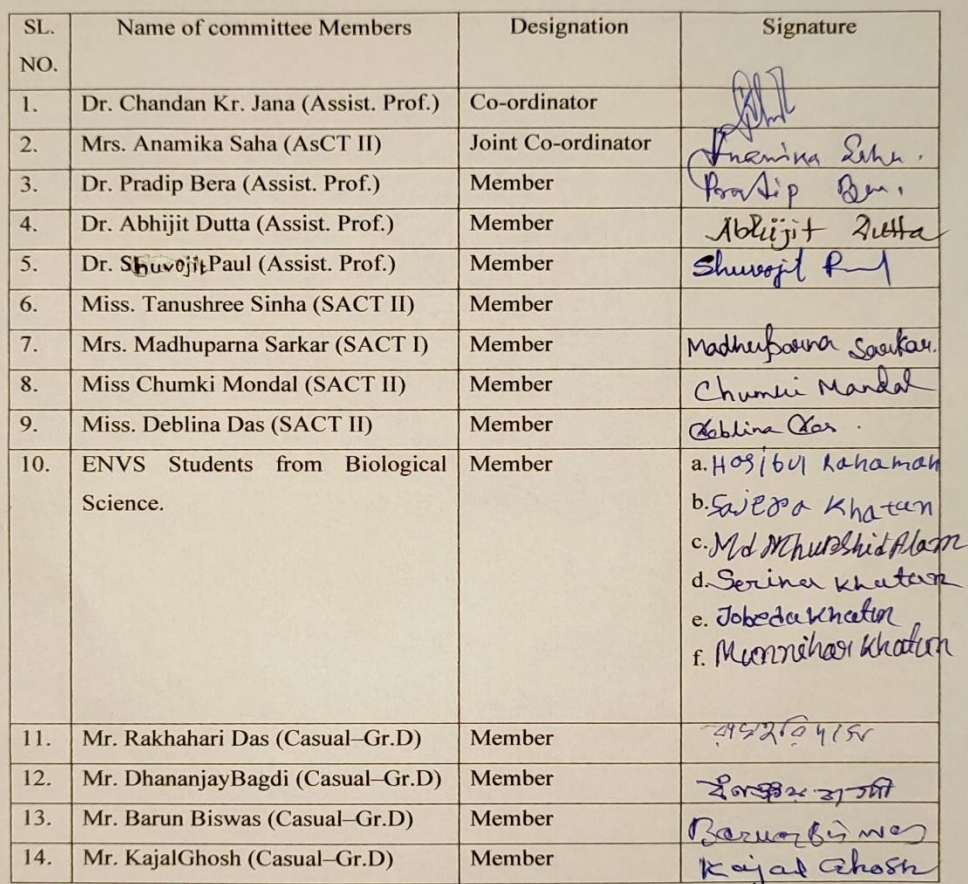 SL. NO. Name of committee Members Designation Signature
1. Dr. Chandan Kr. Jana (Assist. Prof.) Co-ordinator
2. Mrs. Anamika Saha (AsCT II) Joint Co-ordinator Anamika Saha.
3. Dr. Pradip Bera (Assist. Prof.) Member Pradip Bera.
4. Dr. Abhijit Dutta (Assist. Prof.) Member Abhijit Dutta
5. Dr. ShuvojitPaul (Assist. Prof.) Member Shuvojit Paul
6. Miss. Tanushree Sinha (SACT II) Member
7. Mrs. Madhuparna Sarkar (SACT I) Member Madhuparna Sarkar.
8. Miss Chumki Mondal (SACT II) Member Chumki Mandal
9. Miss. Deblina Das (SACT II) Member Deblina Das.
10. ENVS Students from Biological Member a. Hosibul Rahaman
Science. b. Khatun
c. Md Alam
d. Serina Khatun
e. Jobeda Khatun
f. Munnihar Khatun
11. Mr. Rakhahari Das (Casual–Gr.D) Member রাখহরি দাস
12. Mr. DhananjayBagdi (Casual–Gr.D) Member ধনঞ্জয় বাগদী
13. Mr. Barun Biswas (Casual–Gr.D) Member Barun Biswas
14. Mr. KajalGhosh (Casual–Gr.D) Member Kajal Ghosh